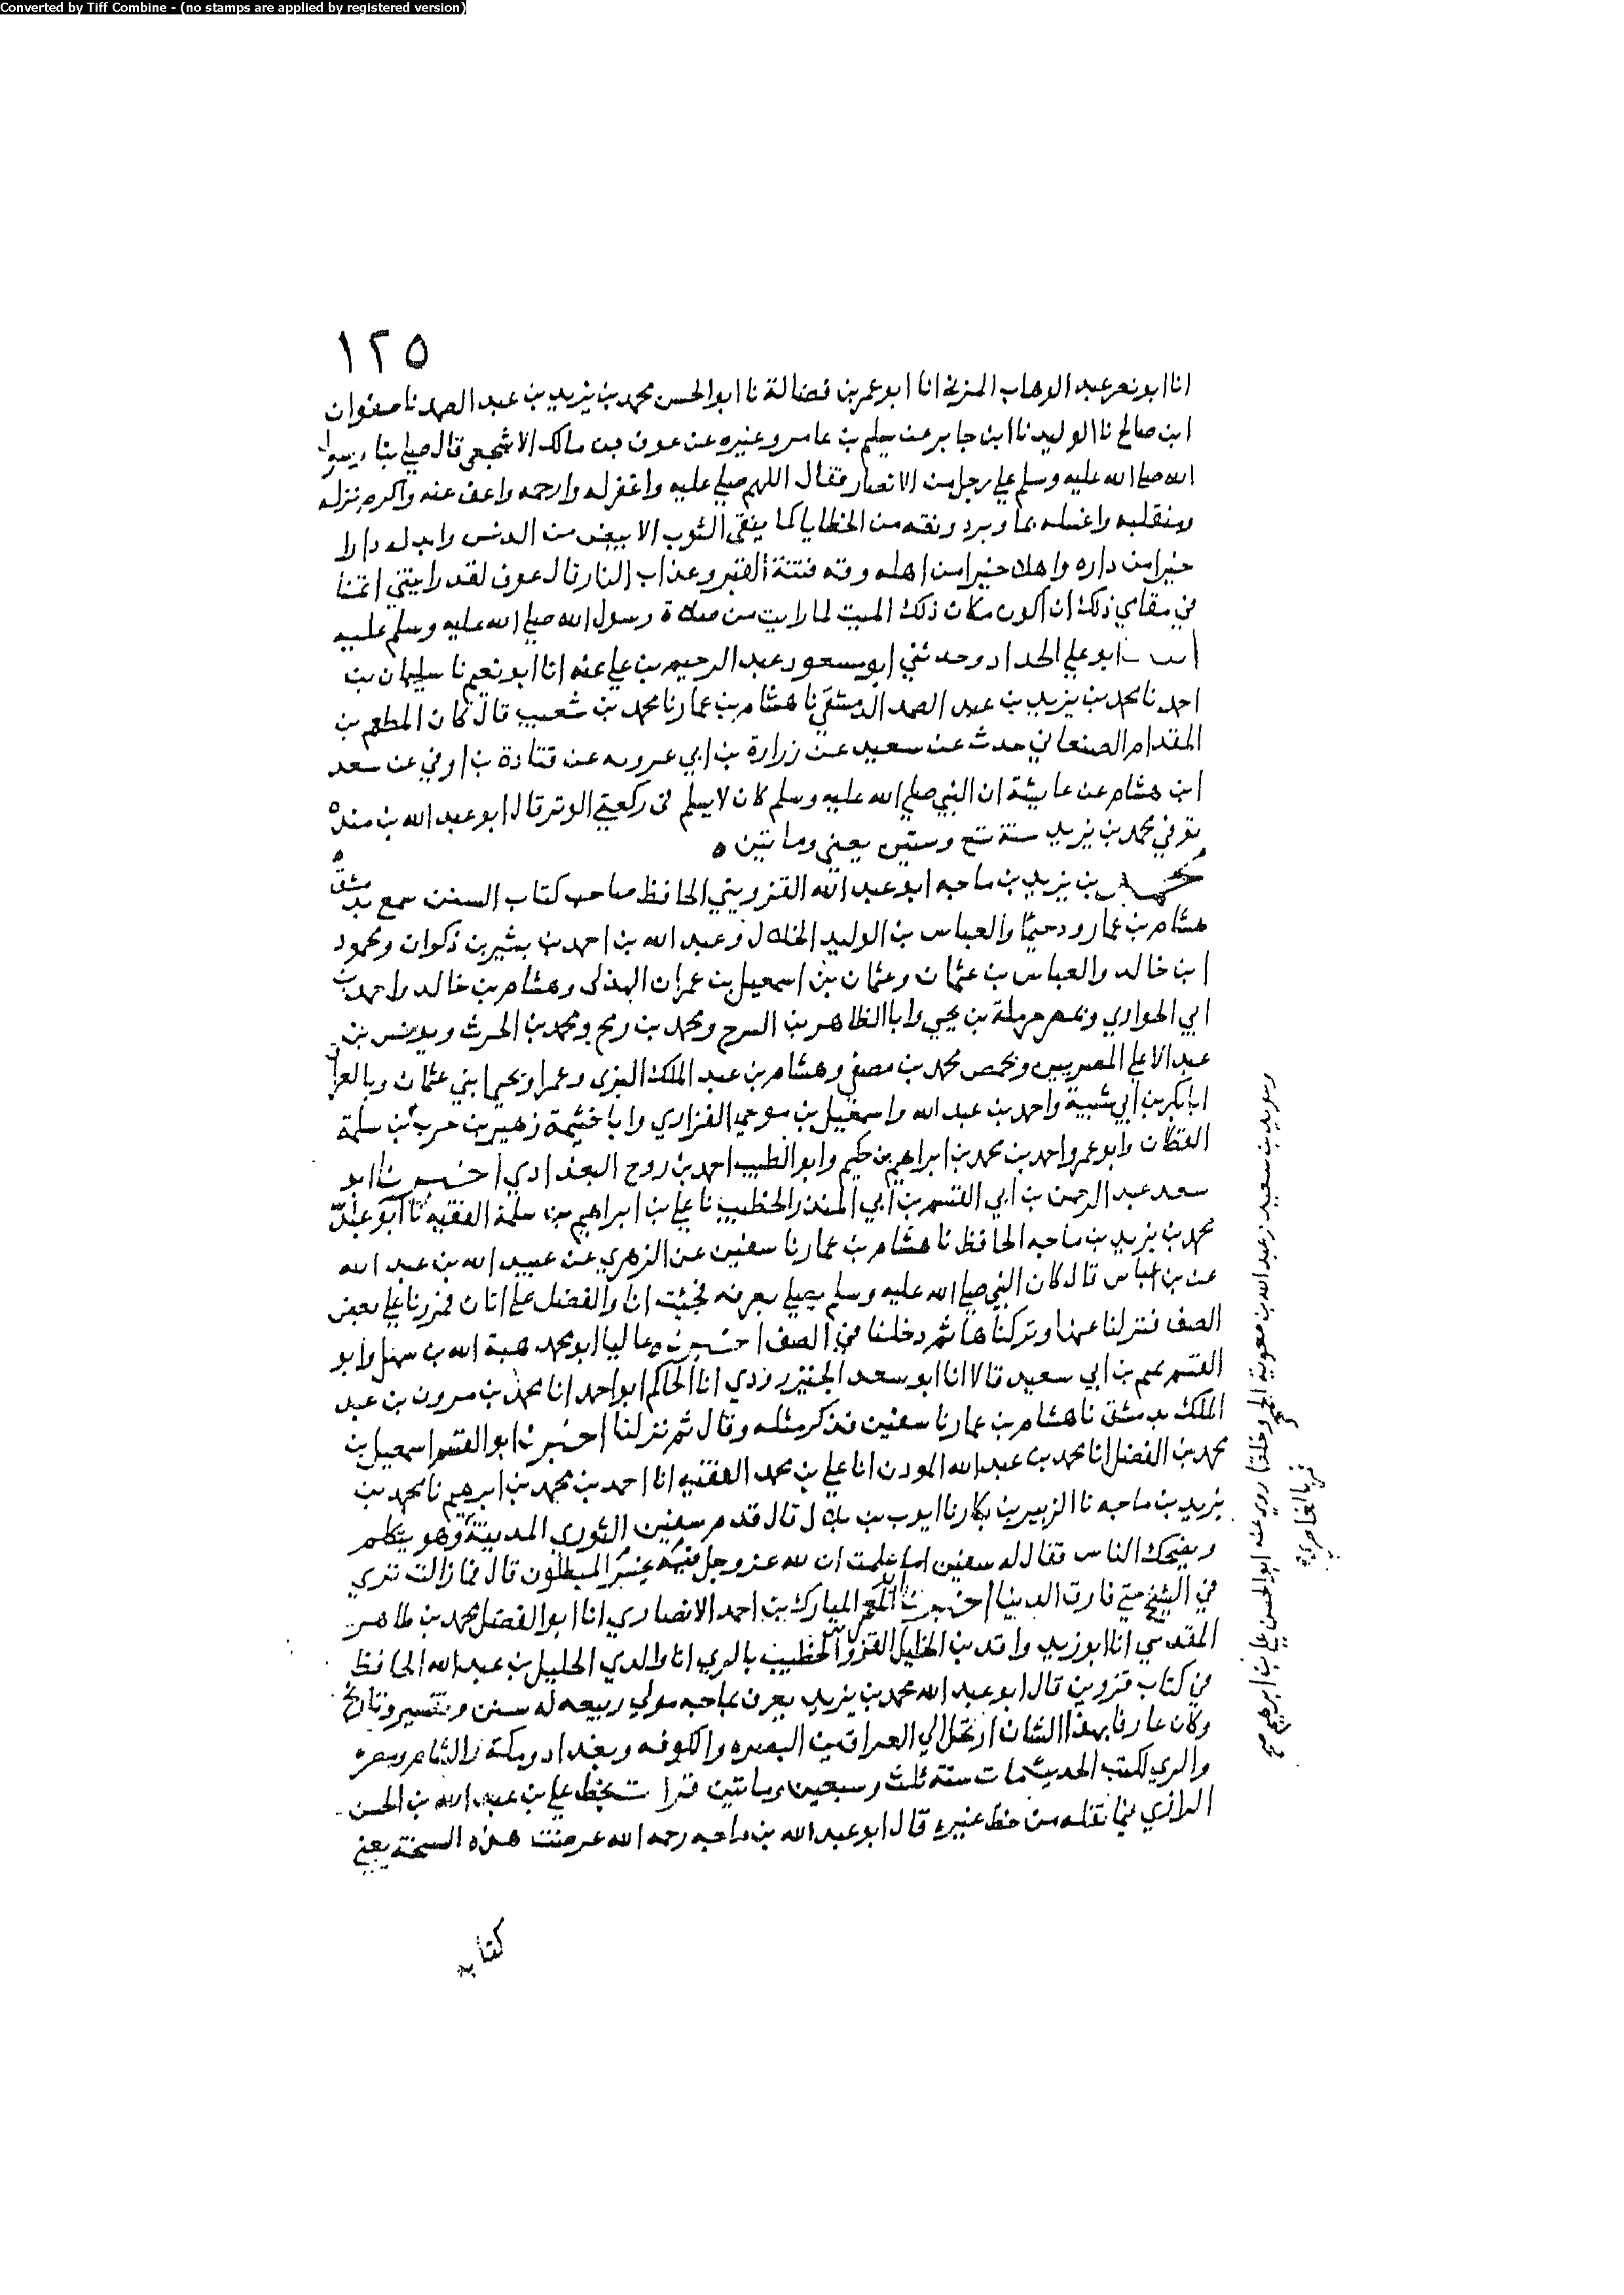 Converted by Tiff Combine - (no stamps are applied by registered version)
١٢٥
انا ابو نصر عبد الوهاب المزني انا ابو عمر بن فضالة نا ابو الحسن محمد بن يزيد بن عبد الصمد نا صفوان
ابن صالح نا الوليد نا ابن جابر عن سليم بن عامر وغيره عن عوف بن مالك الاشجعي قال صلي بنا رسول
الله صلي الله عليه وسلم علي رجل من الانصار فقال اللهم صلي عليه واغفر له وارحمه واعف عنه واكرم نزله
ومنقلبه واغسله بماء وبرد ونقه من الخطايا كما ينقى الثوب الابيض من الدنس وابدله دارا
خيرا من داره واهلا خيرا من اهله وقه فتنة القبر وعذاب النار قال عوف لقد رايتني اتمنا
في مقامي ذلك ان اكون مكان ذلك الميت لما رايت من صلاة رسول الله صلي الله عليه وسلم عليه
ابو علي الحداد وحدثني ابو مسعود عبد الرحيم بن علي عنه انا ابو نعيم نا سليمان بن
احمد نا محمد بن يزيد بن عبد الصمد الدمشقي نا هشام بن عمار نا محمد بن شعيب قال كان المطعم بن
المقدام الصنعاني حدث عن سعيد عن زرارة بن ابي عروبه عن قتادة بن اوفي عن سعد
ابن هشام عن عايشة ان النبي صلي الله عليه وسلم كان لا يسلم في ركعتي الوتر قال ابو عبد الله بن منده
توفي محمد بن يزيد سنة تسع وستين يعني وماتين ه
محمد بن يزيد بن ماجه ابو عبد الله القزويني الحافظ صاحب كتاب السنن سمع بدمشق
هشام بن عمار ودحيما والعباس بن الوليد الخلال وعبد الله بن احمد بن بشير بن ذكوان ومحمود
ابن خالد والعباس بن عثمان وعثمان بن اسمعيل بن عمران الهذلى وهشام بن خالد واحمد بن
ابي الحواري وبمصر حرملة بن يحيي وابا الطاهر بن السرح ومحمد بن رمح ومحمد بن الحرث ويونس بن
عبد الاعلي المصريين وبحمص محمد بن مصفى وهشام بن عبد الملك اليزي وعمرا ويحيا بني عثمان وبالعراق
ابا بكر بن ابي شيبة واحمد بن عبد الله واسمعيل بن موسى الفزاري وابا خثيمة زهير بن حرب بن سلمة
القطان وابو عمرو احمد بن محمد بن ابراهيم بن حكيم وابو الطيب احمد بن روح البغدادي اخبرنا ابو
سعد عبد الرحمن بن ابي القسم بن ابي المنذر الخطيب نا علي بن ابراهيم بن سلمة الفقيه نا ابو عبد الله
محمد بن يزيد بن ماجه الحافظ نا هشام بن عمار نا سفين عن الزهري عن عبيد الله بن عبد الله
عن بن عباس قال كان النبي صلي الله عليه وسلم يصلي بعرفه فجئت انا والفضل علي اتان فمررنا علي بعض
الصف فنزلنا عنها وتركناها ثم دخلنا في الصف اخبرناه عاليا ابو محمد هبة الله بن سهل وابو
القسم تميم بن ابي سعيد قالا انا ابو سعد الجنزرودي انا الحاكم ابو احمد انا محمد بن مرون بن عبد
الملك بدمشق نا هشام بن عمار نا سفين فذكر مثله وقال ثم نزلنا اخبرنا ابو القسم اسمعيل بن
محمد بن الفضل انا محمد بن عبد الله المودن انا علي بن محمد الفقيه انا احمد بن محمد بن ابرهيم نا محمد بن
يزيد بن ماجه نا الزبير بن بكار نا ايوب بن بلال قال قدم سفين الثوري المدينة وهو يتكلم
ويضحك الناس فقال له سفين اما علمت ان لله عز وجل يخسر المبطلون قال فما زالت تري
في الشيخ حتي فارق الدنيا اخبرنا المعمر المبارك بن احمد الانصاري انا ابو الفضل محمد بن طاهر
المقدسي انا ابو زيد واقد بن الخليل القزويني الخطيب بالري انا والدي الخليل بن عبد الله الحافظ
في كتاب قزوين قال ابو عبد الله محمد بن يزيد يعرف بماجه مولي ربيعه له سنن وتفسير وتاريخ
وكان عارفا بهذا الشان ارتحل الي العراقين البصره والكوفه وبغداد ومكة والشام ومصر
والري لكتب الحديث مات سنة ثلث وسبعين وماتين قرات بخط علي بن عبد الله بن الحسن
الرازي فيما نقله من خط غيره قال ابو عبد الله بن ماجه رحمه الله عرضت هذه النسخة يعني
كتابه
وسويد بن سعيد وعبد الله بن معوية الجمحي وخلقا روي عنه ابو الحسن علي بن ابرهيم صح